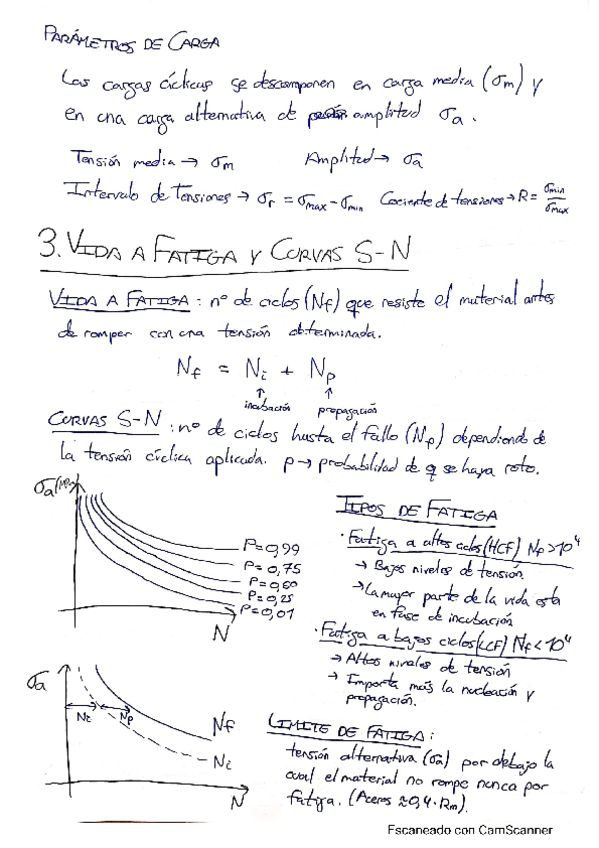 PARÁMETROS DE CARGA
Las cargas cíclicas se descomponen en carga media (σm) y
en una carga alternativa de amplitud σa.
Tensión media → σm Amplitud → σa
Intervalo de tensiones → σr = σmax - σmin Cociente de tensiones → R = σmin/σmax
3. VIDA A FATIGA Y CURVAS S-N
VIDA A FATIGA: nº de ciclos (Nf) que resiste el material antes
de romper con una tensión determinada.
Nf = Ni + Np
↑ ↑
incubación propagación
CURVAS S-N: nº de ciclos hasta el fallo (Np) dependiendo de
la tensión cíclica aplicada. p → probabilidad de q se haya roto.
σa (MPa)
P=0,99
P=0,75
P=0,60
P=0,25
P=0,01
N
TIPOS DE FATIGA
· Fatiga a altos ciclos (HCF) Nf > 10⁴
→ Bajos niveles de tensión.
→ La mayor parte de la vida está
en fase de incubación
· Fatiga a bajos ciclos (LCF) Nf < 10⁴
→ Altos niveles de tensión
→ Importa más la nucleación y
propagación.
σa
Ni Np
Nf
Ni
N
LIMITE DE FATIGA:
tensión alternativa (σa) por debajo la
cual el material no rompe nunca por
fatiga. (Aceros ≈ 0,4·Rm).
Escaneado con CamScanner